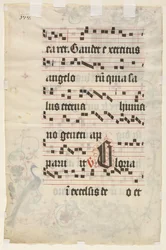 caret. Gaudet exercitus
angelo rū quia sa
lus eterna huma
no generi ap
paru it Gloria
ī excelsis de o et